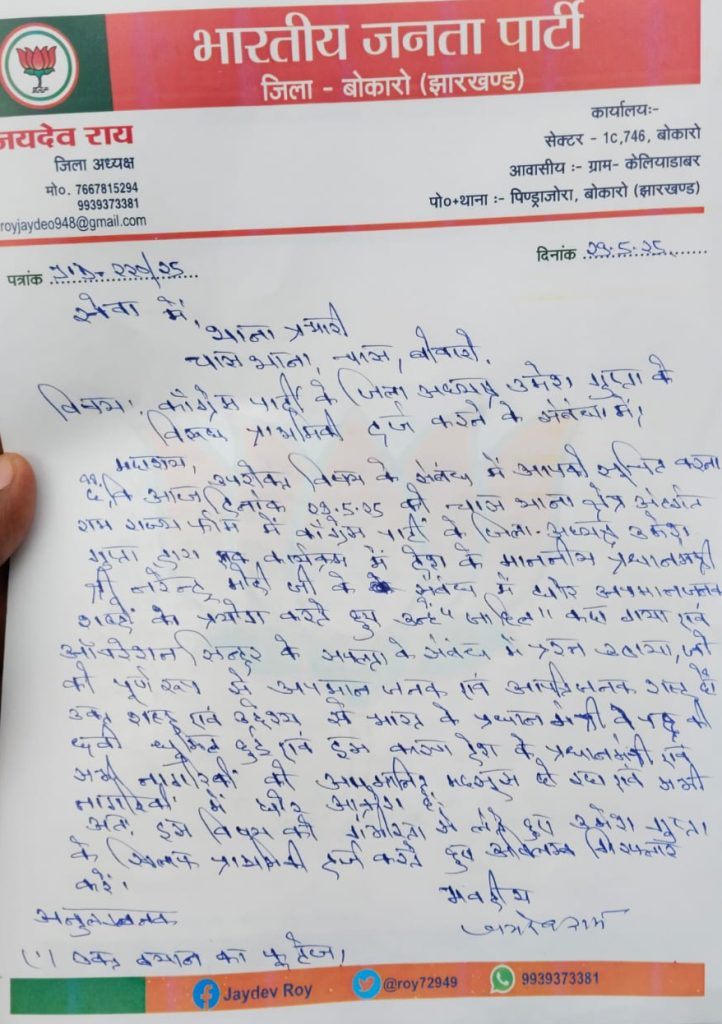 भारतीय जनता पार्टी
जिला - बोकारो (झारखण्ड)
BJP
जयदेव राय
जिला अध्यक्ष
मो०. 7667815294
9939373381
royjaydeo948@gmail.com
कार्यालयः-
सेक्टर - 1C,746, बोकारो
आवासीय :- ग्राम- केलियाडाबर
पो०+थाना :- पिण्ड्राजोरा, बोकारो (झारखण्ड)
पत्रांक
दिनांक 29.5.25
सेवा में,
थाना प्रभारी
चास थाना, चास, बोकारो.
विषय: काँग्रेस पार्टी के जिला अध्यक्ष उमेश गुप्ता के
विरूध प्राथमिकी दर्ज करने के संबंध में।
महाशय, उपरोक्त विषय के संबंध में आपको सूचित करना
है कि आज दिनांक 29.5.25 को चास थाना क्षेत्र अंतर्गत
काँग्रेस पार्टी के जिला अध्यक्ष उमेश
गुप्ता द्वारा एक कार्यक्रम में देश के माननीय प्रधानमंत्री
श्री नरेन्द्र मोदी जी के संबंध में घोर अपमानजनक
शब्दों का प्रयोग करते हुए उन्हें "जाहिल" कहा गया एवं
ऑपरेशन सिन्दूर के सफलता के संबंध में प्रश्न उठाया, जो
की पूर्ण रूप से अपमान जनक एवं आपत्तिजनक शब्द है
उक्त शब्द एवं उद्देश्य से भारत के प्रधानमंत्री के पद की
छवी धूमिल हुई एवं इस कारण देश के प्रधानमंत्री एवं
सभी नागरिकों को अपमानित महसूस हो रहा एवं सभी
नागरिकों में घोर आक्रोश है.
अतः इस विषय को गंभीरता से लेते हुए उमेश गुप्ता
के खिलाफ प्राथमिकी दर्ज करते हुए अविलम्ब गिरफ्तार
करें।
भवदीय
जयदेव राय
(1) उक्त बयान का फूटेज।
Jaydev Roy
@roy72949
9939373381